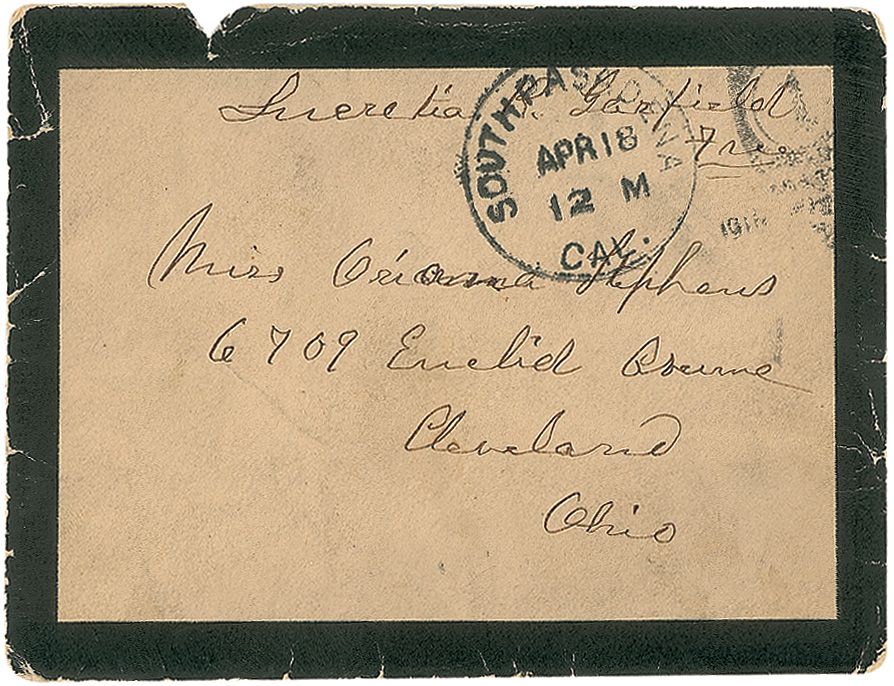 Lucretia R. Garfield
Free
SOUTH PASADENA
APR 18
12 M
CAL.
Miss Oriana Stephens
6709 Euclid Avenue
Cleveland
Ohio